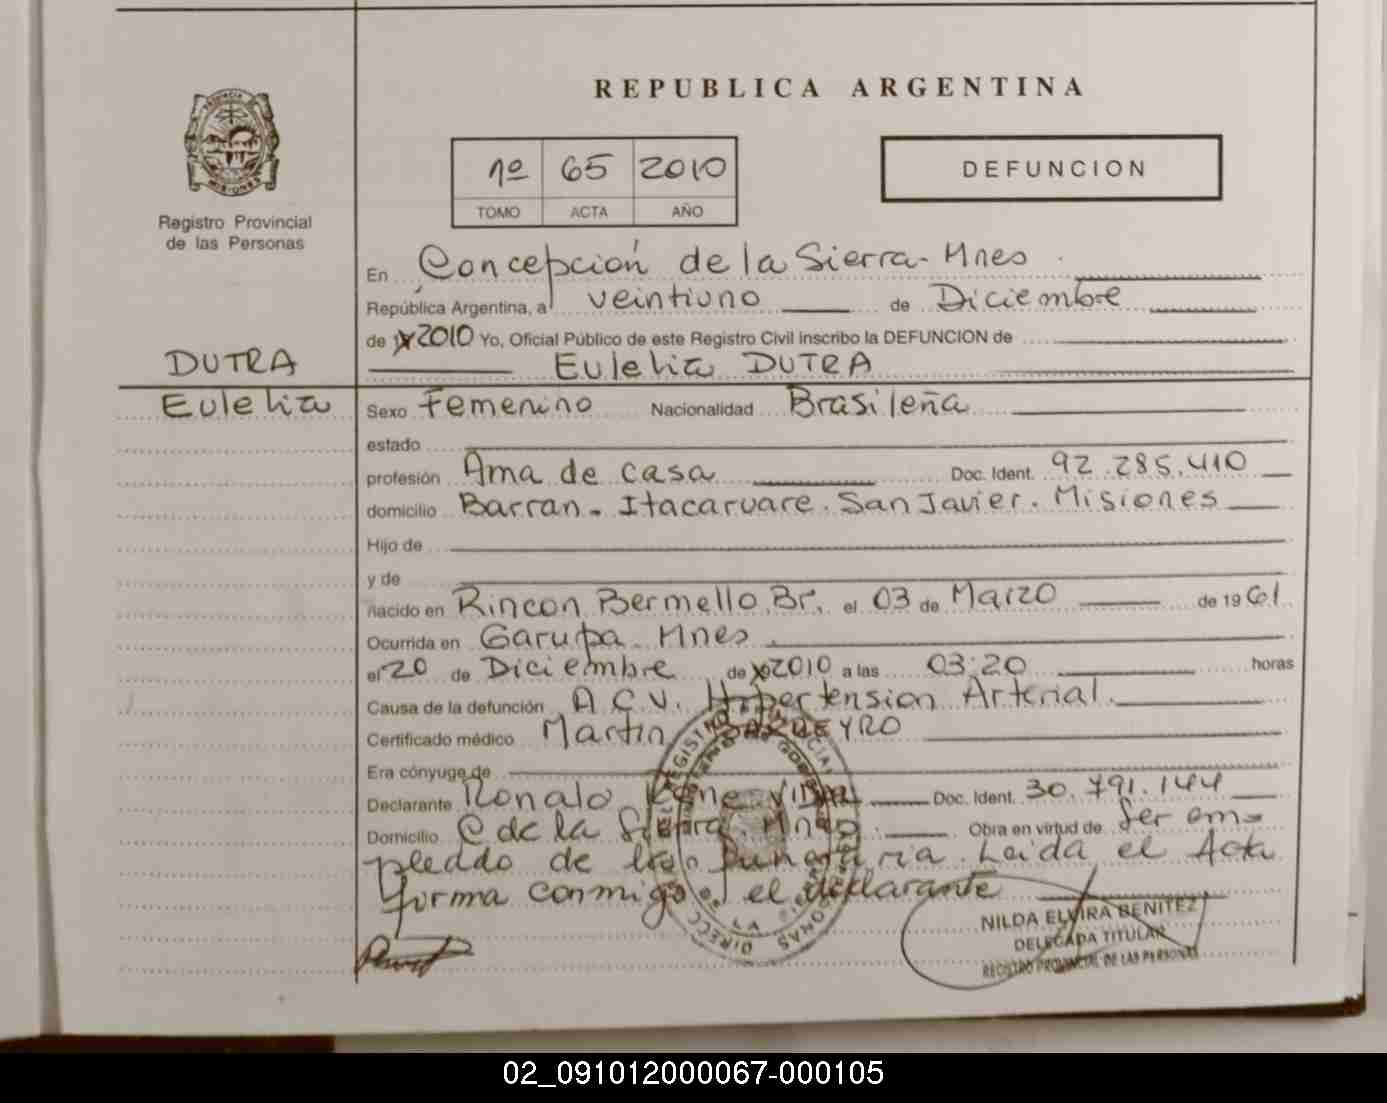 REPUBLICA ARGENTINA
1º 65 2010
TOMO ACTA AÑO
DEFUNCION
Registro Provincial
de las Personas
En Concepción de la Sierra - Mnes
República Argentina, a veintiuno de Diciembre
de 2010 Yo, Oficial Público de este Registro Civil inscribo la DEFUNCION de
DUTRA
Eulelia DUTRA
Eulelia
Sexo Femenino Nacionalidad Brasileña
estado
profesión Ama de casa Doc. Ident. 92.285.410
domicilio Barran. Itacaruare. San Javier. Misiones
Hijo de
y de
nacido en Rincon Bermello. Br. el 03 de Marzo de 1961
Ocurrida en Garupa - Mnes
el 20 de Diciembre de 2010 a las 03:20 horas
Causa de la defunción A.C.V. Hipertension Arterial.
Certificado médico Martin
Era cónyuge de
Declarante Ronaldo Doc. Ident. 30.791.144
Domicilio C de la Sierra. Mnes. Obra en virtud de Ser em-
pleado de funeraria. Leida el Acta
firma conmigo el declarante
NILDA ELVIRA BENITEZ
DELEGADA TITULAR
REGISTRO PROVINCIAL DE LAS PERSONAS
02_091012000067-000105